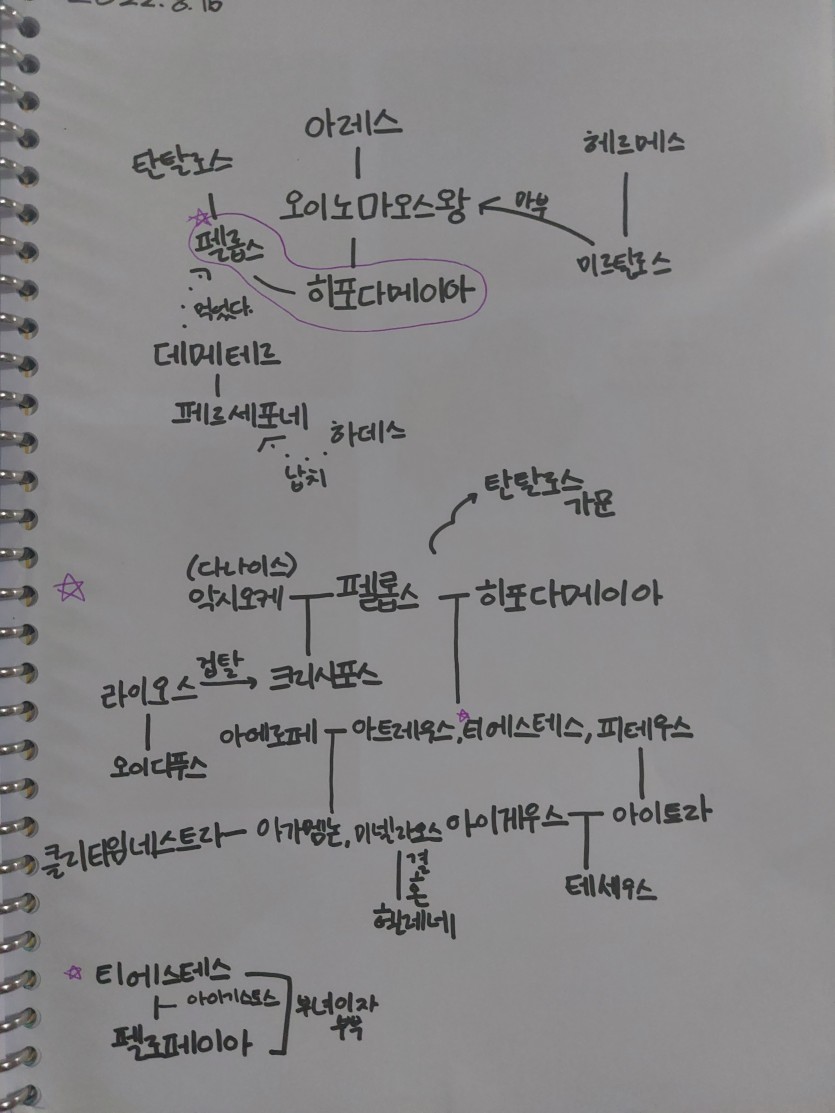 2022.8.16
아레스
탄탈로스
헤르메스
오이노마오스왕
마부
펠롭스
미르탈로스
히포다메이아
먹었다.
데메테르
페르세포네
하데스
납치
탄탈로스
가문
(다나이스)
악시오케
펠롭스
히포다메이아
라이오스
겁탈
크리시포스
아에로페
아트레우스, 티에스테스, 피테우스
오이디푸스
클리타임네스트라
아가멤논, 미넬라오스
아이게우스
아이트라
결혼
헬레네
테세우스
티에스테스
아이기스토스
부녀이자
부부
펠로페이아